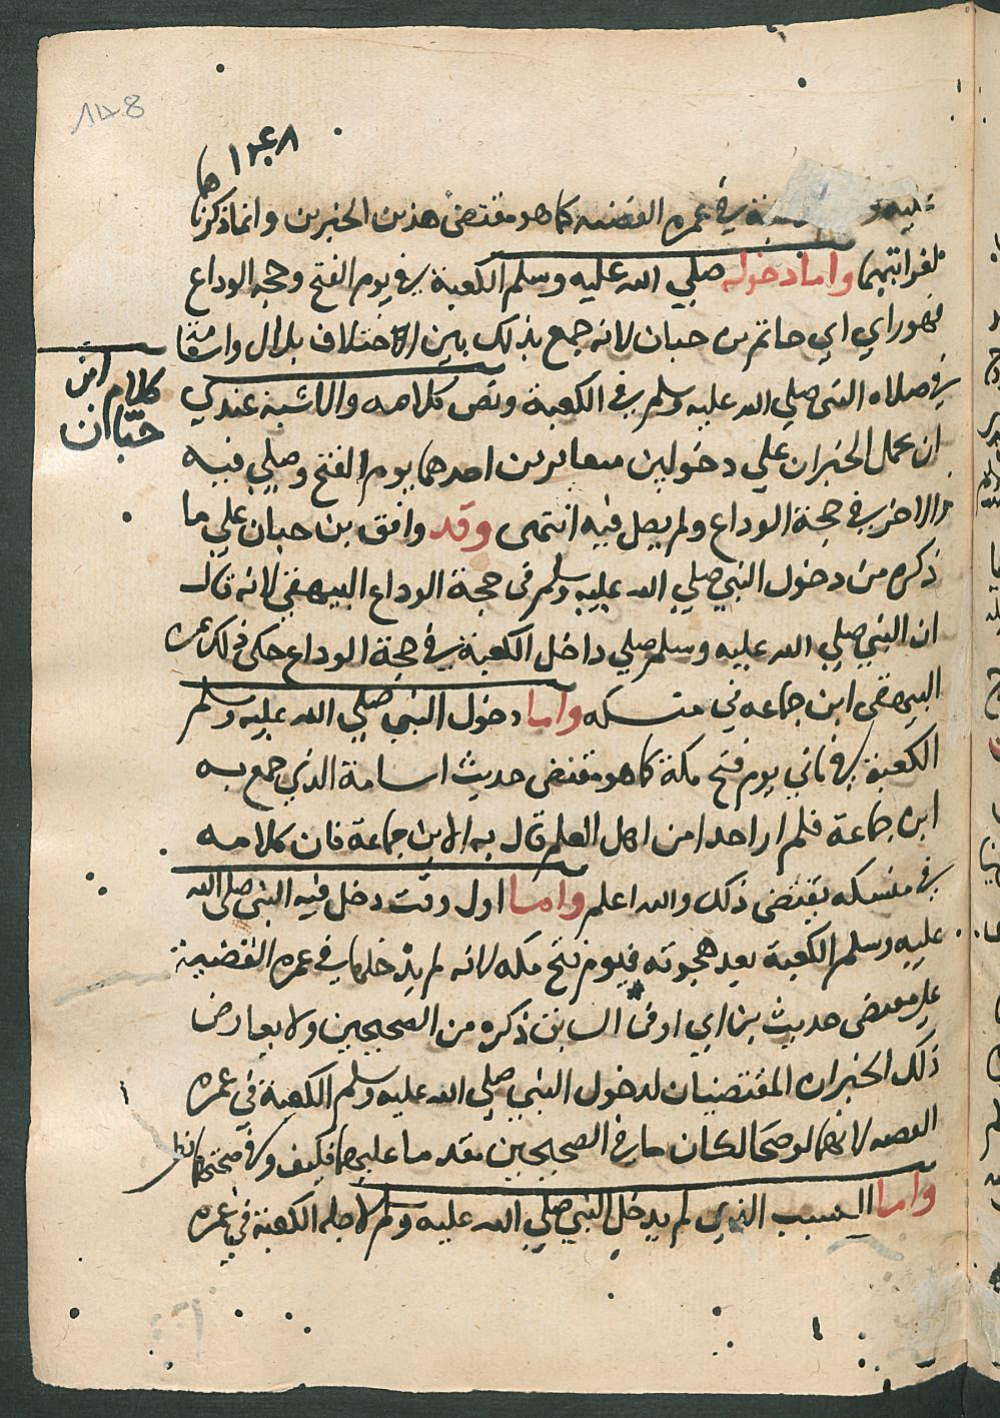 ١٢٤٨
في عمرة القضيه كما هو مقتضى هذين الخبرين وانما ذكرناهما
لغرابتهما واما دخوله صلي الله عليه وسلم الكعبة في يوم الفتح وحجه الوداع
فهو راي ابي حاتم بن حبان لانه جمع بذلك بين الاختلاف بلال واسامة
في صلاه النبي صلي الله عليه وسلم في الكعبة ونص كلامه والاشبه عندي
ان يحمل الخبران علي دخولين متغايرين احدهما يوم الفتح وصلي فيه
والاخر في حجة الوداع ولم يصل فيه انتهى وقد وافق بن حبان علي ما
ذكره من دخول النبي صلي الله عليه وسلم في حجة الوداع البيهقي لانه قال
ان النبي صلي الله عليه وسلم صلي داخل الكعبة في حجة الوداع حكى ذلك عن
البيهقى ابن جماعه في منسكه واما دخول النبي صلي الله عليه وسلم
الكعبة في ثاني يوم فتح مكة كما هو مقتضى حديث اسامة الذي جمع به
ابن جماعة فلم ار احدا من اهل العلم قال به الا بن جماعة فان كلامه
في منسكه يقتضى ذلك والله اعلم واما اول وقت دخل فيه النبي صلى الله
عليه وسلم الكعبة بعد هجرته فيوم فتح مكه لانه لم يدخلها في عمرة القضية
على مقتضى حديث بن ابي اوفى السابق ذكره من الصحيحين ولا يعارض
ذلك الخبران المقتضيان لدخول النبي صلي الله عليه وسلم الكعبة في عمرة
القضيه لانهما لو صحا لكان ما في الصحيحين مقدما عليهما فكيف وفي صحتهما نظر
واما السبب الذي لم يدخل النبي صلي الله عليه وسلم لاجله الكعبة في عمرة
كلام ابن
حبّان